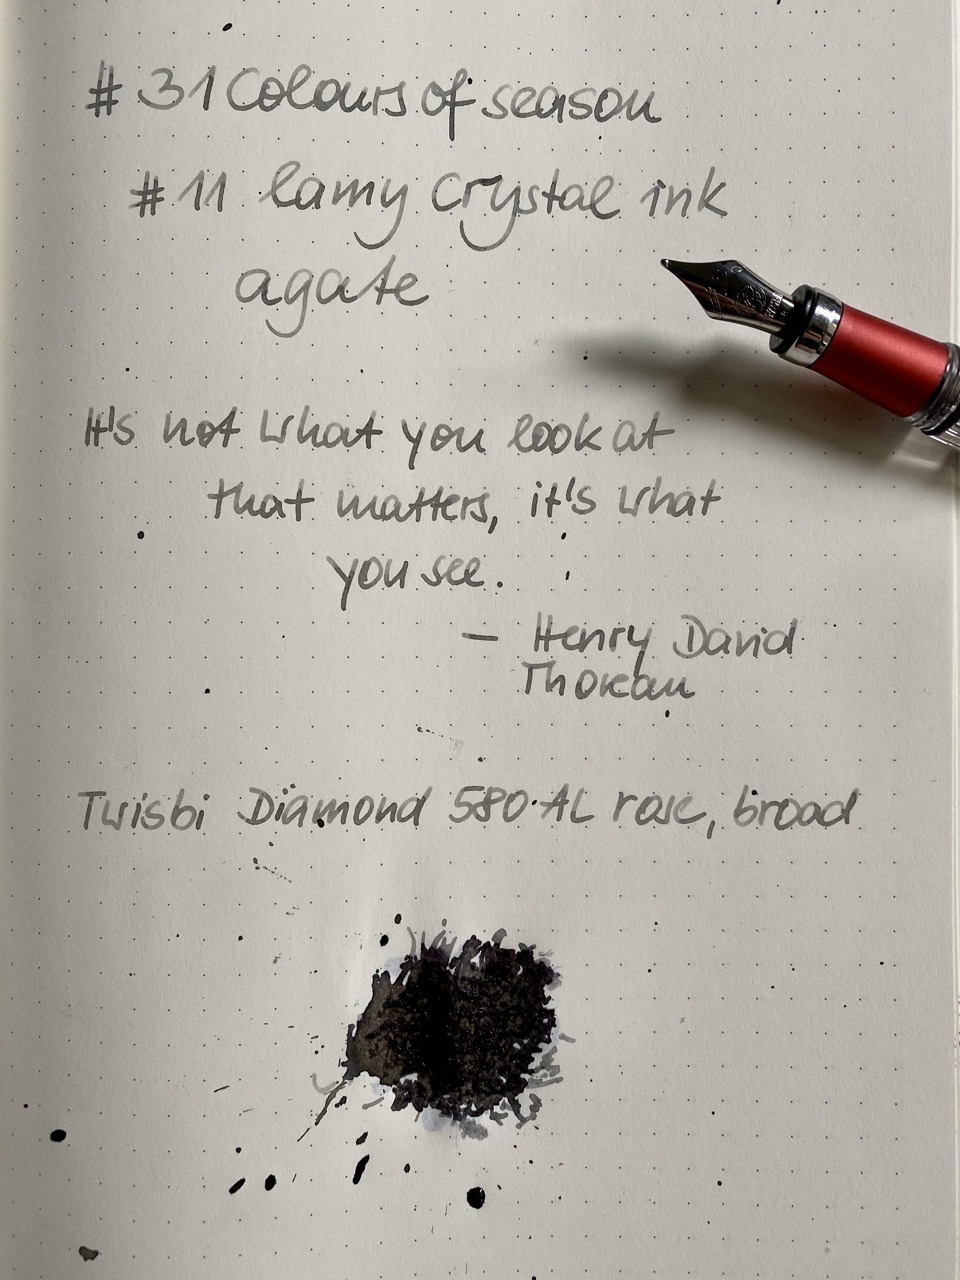 # 31 Colours of season
# 11 Lamy Crystal ink
agate
It's not what you look at
that matters, it's what
you see.
— Henry David
Thoreau
Twisbi Diamond 580 AL rose, broad